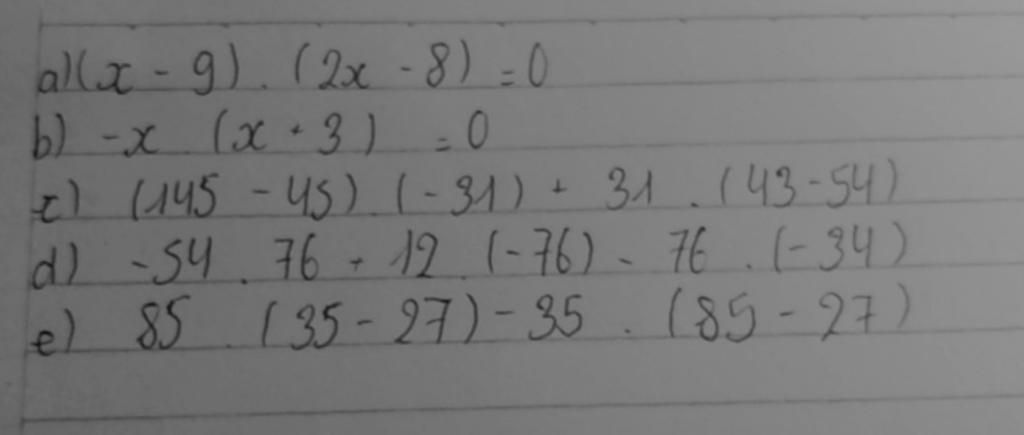 a) (x - 9) . (2x - 8) = 0
b) -x (x + 3) = 0
c) (145 - 45) . (-31) + 31 . (43 - 54)
d) -54 . 76 + 12 . (-76) - 76 . (-34)
e) 85 . (35 - 27) - 35 . (85 - 27)